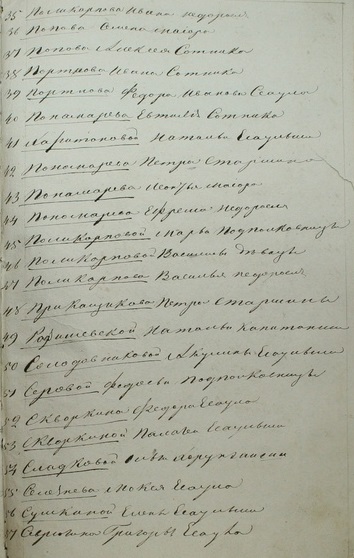 35 Поликарпова Ивана недоросля
36 Попова Семена маіора
37 Попова Алексея Сотника
38 Портнова Ивана Сотника
39 Портнова Федора Иванова Есаула
40 Пономарева Сотника
41 Харитоновой Натальи Есаульши
42 Пономарева Петра Старшины
43 Пономарева маіора
44 Пономарева Ефрема Недоросля
45 Поликарповой Марфы Подполковницы
46 Поликарповой Василисы девицы
47 Поликарпова Василья недоросля
48 Приказчикова Петра Старшины
49 Натальи капитанши
50 Солодовниковой Акулины Есаульши
51 Серовой Федосьи Подполковницы
52 Скворкина Федора Есаула
53 Скворкиной Пелагеи Есаульши
54 Сладковой хорунжанки
55 Селезнева Мокея Есаула
56 Сушкиной Елены Есаульши
57 Григорья Есаула